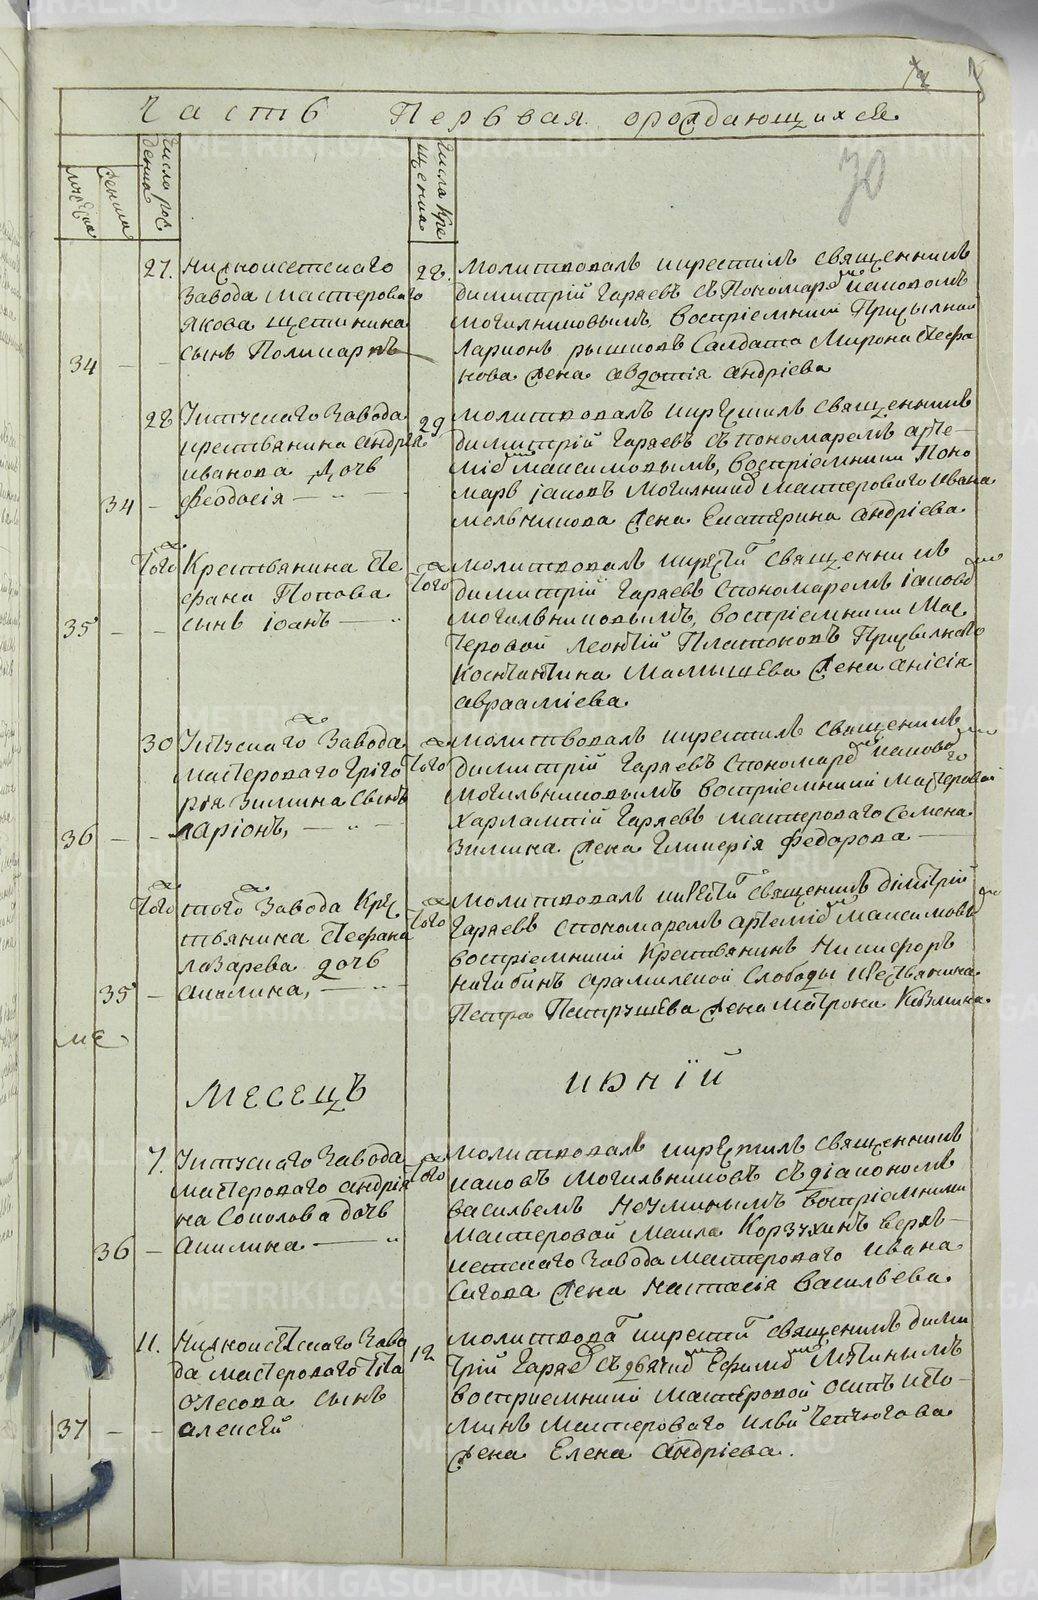 METRIKI.GASO-URAL.RU
Часть Первая ораждающихся
30
мужеска
женска
Число рож
дения
Числа кре
щения
27. Нижноисетскаго
Завода мастероваго
Якова Щетинина
сынъ Поликарпъ
34
28. Молитвовалъ икрестилъ священникъ
Димитрій Гаряевъ съ Пономаремъ иаковомъ
Могилниковымъ, воспріемники
Ларионъ рышковъ Салдата Мирона Стефа
нова жена авдотія андріева
28 Уктускаго Завода
крестьянина андрея
иванова дочь
34 феодосія
29 Молитвовалъ икрестилъ священникъ
димитрій Гаряевъ съ пономаремъ арте-
міемъ Максимовымъ, воспріемники Поно
марь іаковъ Могилниковъ Мастероваго ивана
Мельникова жена Екатерина андріева.
Того Крестьянина Сте
фана Попова
35 сынъ іоанъ
Того Молитвовалъ икрестилъ священникъ
димитрій Гаряевъ спономаремъ іаковомъ
Могильниковымъ, воспріемники Мас
теровой леонтій Платоновъ
Костантина Малышева жена анісія
аврааміева.
30 Уктускаго Завода
мастероваго Григо
рія Зимина сынъ
36 ларіонъ,
Того Молитвовалъ икрестилъ священникъ
димитрій Гаряевъ спономаремъ иаковомъ
Могильниковымъ воспріемники Мастеровой
Харлампій Гаряевъ мастероваго Семена
Зимина жена Гликерія Федарова
Того того Завода Крес
тьянина Стефана
лазарева дочь
35 акилина,
Того Молитвовалъ икрестилъ священникъ дімитрій
Гаряевъ спономаремъ артеміемъ Максимовымъ
воспріемники Крестьянинъ Никифоръ
Нагибинъ арамилской Слободы крестьянина
Петра Петрушева жена Матрона Козмина.
МЕСЕЦЪ ИЮНІЙ
7. Уктускаго Завода
мастероваго андрія
на Соколова дочь
36 Акилина
Того Молитвовалъ икрестилъ священникъ
иаковъ Могильниковъ съ діакономъ
васильемъ Нечкинымъ воспріемники
мастеровой Маила Корзухинъ верхъ-
исетскаго Завода мастероваго ивана
Сигова жена Настасія васильева.
11. Нижноисетскаго Заво
да мастероваго Тита
Олесова сынъ
37 алексей
12 Молитвовалъ икрестилъ священникъ дими
трій Гаряевъ съ дьячкомъ Ефимомъ
восприемники Мастеровой осипъ исто-
минъ Мастероваго ильи Чепчюгова
жена Елена Андріева.